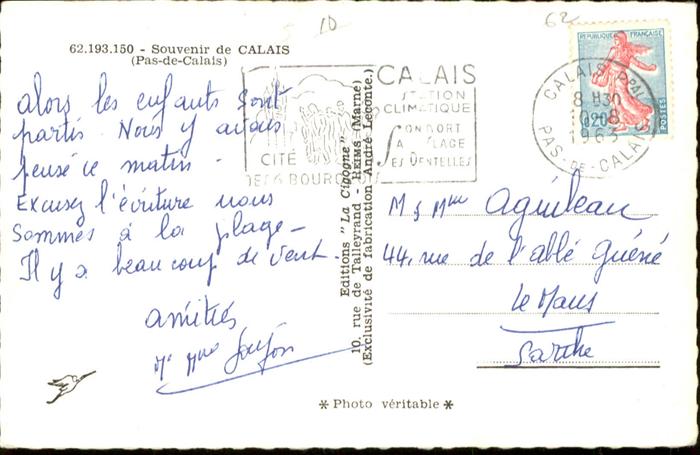 10
62
62.193.150 - Souvenir de CALAIS
(Pas-de-Calais)
alors les enfants sont
partis. Nous y avons
pensé ce matin -
Excusez l'écriture nous
sommes à la plage -
Il y a beaucoup de vent -
amitiés
Mr Mme
CITÉ
DES 6 BOURGEOIS
CALAIS
STATION
CLIMATIQUE
SON PORT
SA PLAGE
SES DENTELLES
CALAIS PPAL
8 H30
8
1963
PAS-DE-CALAIS
REPUBLIQUE FRANÇAISE
0,20
POSTES
Editions "La Cigogne"
10, rue de Talleyrand - REIMS (Marne)
(Exclusivité de fabrication André Leconte.)
M & Mme Aguileau
44, rue de l'abbé Guéné
Le Mans
Sarthe
* Photo véritable *